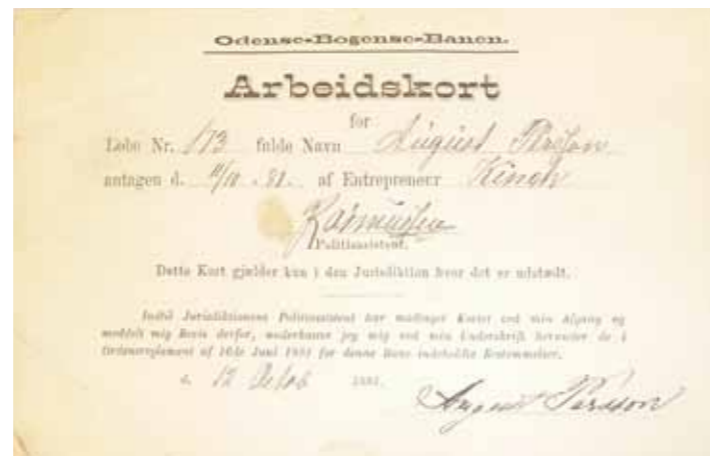 Odense-Bogense-Banen.
Arbeidskort
for
Løbe Nr. 173 fulde Navn August Persson
antagen d. 11/10 . 81. af Entrepreneur
Rasmussen
Politiassistent.
Dette Kort gjælder kun i den Jurisdiktion hvor det er udstedt.
Indtil Jurisdiktionens Politiassistent har modtaget Kortet ved min Afgang og
meddelt mig Bevis derfor, underkaster jeg mig ved min Underskrift herunder de i
Ordensreglement af 10de Juni 1881 for denne Bane indeholdte Bestemmelser.
d. 12 Octob 1881.
August Persson